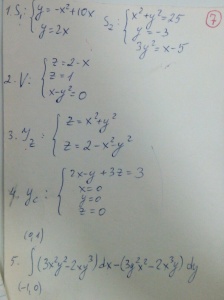 1. S₁: { y = -x² + 10x
y = 2x
S₂: { x² + y² = 25
y = -3
3y² = x - 5
7
2. V: { z = 2 - x
z = 1
x - y² = 0
3. { z = x² + y²
z = 2 - x² - y²
4. { 2x - y + 3z = 3
x = 0
y = 0
z = 0
(0,1)
5. ∫ (3x²y² - 2xy³) dx - (3y²x² - 2x³y) dy
(-1,0)